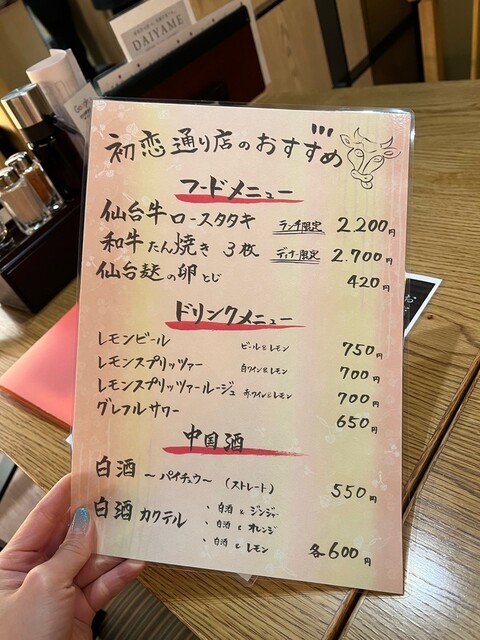 DAIYAME
初恋通り店のおすすめ
フードメニュー
仙台牛ロースタタキ ランチ限定 2.200円
和牛たん焼き 3枚 ディナー限定 2.700円
仙台麩の卵とじ 420円
ドリンクメニュー
レモンビール ビール&レモン 750円
レモンスプリッツァー 白ワイン&レモン 700円
レモンスプリッツァールージュ 赤ワイン&レモン 700円
グレフルサワー 650円
中国酒
白酒 〜パイチュウ〜 (ストレート) 550円
白酒カクテル ・白酒とジンジャー
・白酒とオレンジ
・白酒とレモン 各600円